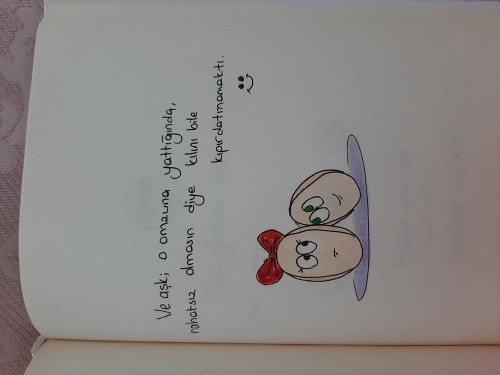 Ve aşk; o omzuna yattığında,
rahatsız olmasın diye kılını bile
kıpırdatmamaktı.